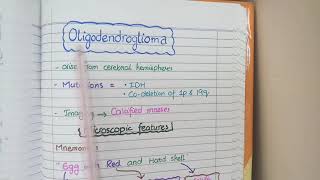 Oligodendroglioma
- arise from cerebral hemispheres
- Mutations = • IDH
• Co-deletion of 1p & 19q.
- Imaging → Calcified masses
Microscopic features
Mnemonic
Egg Red and Hard shell